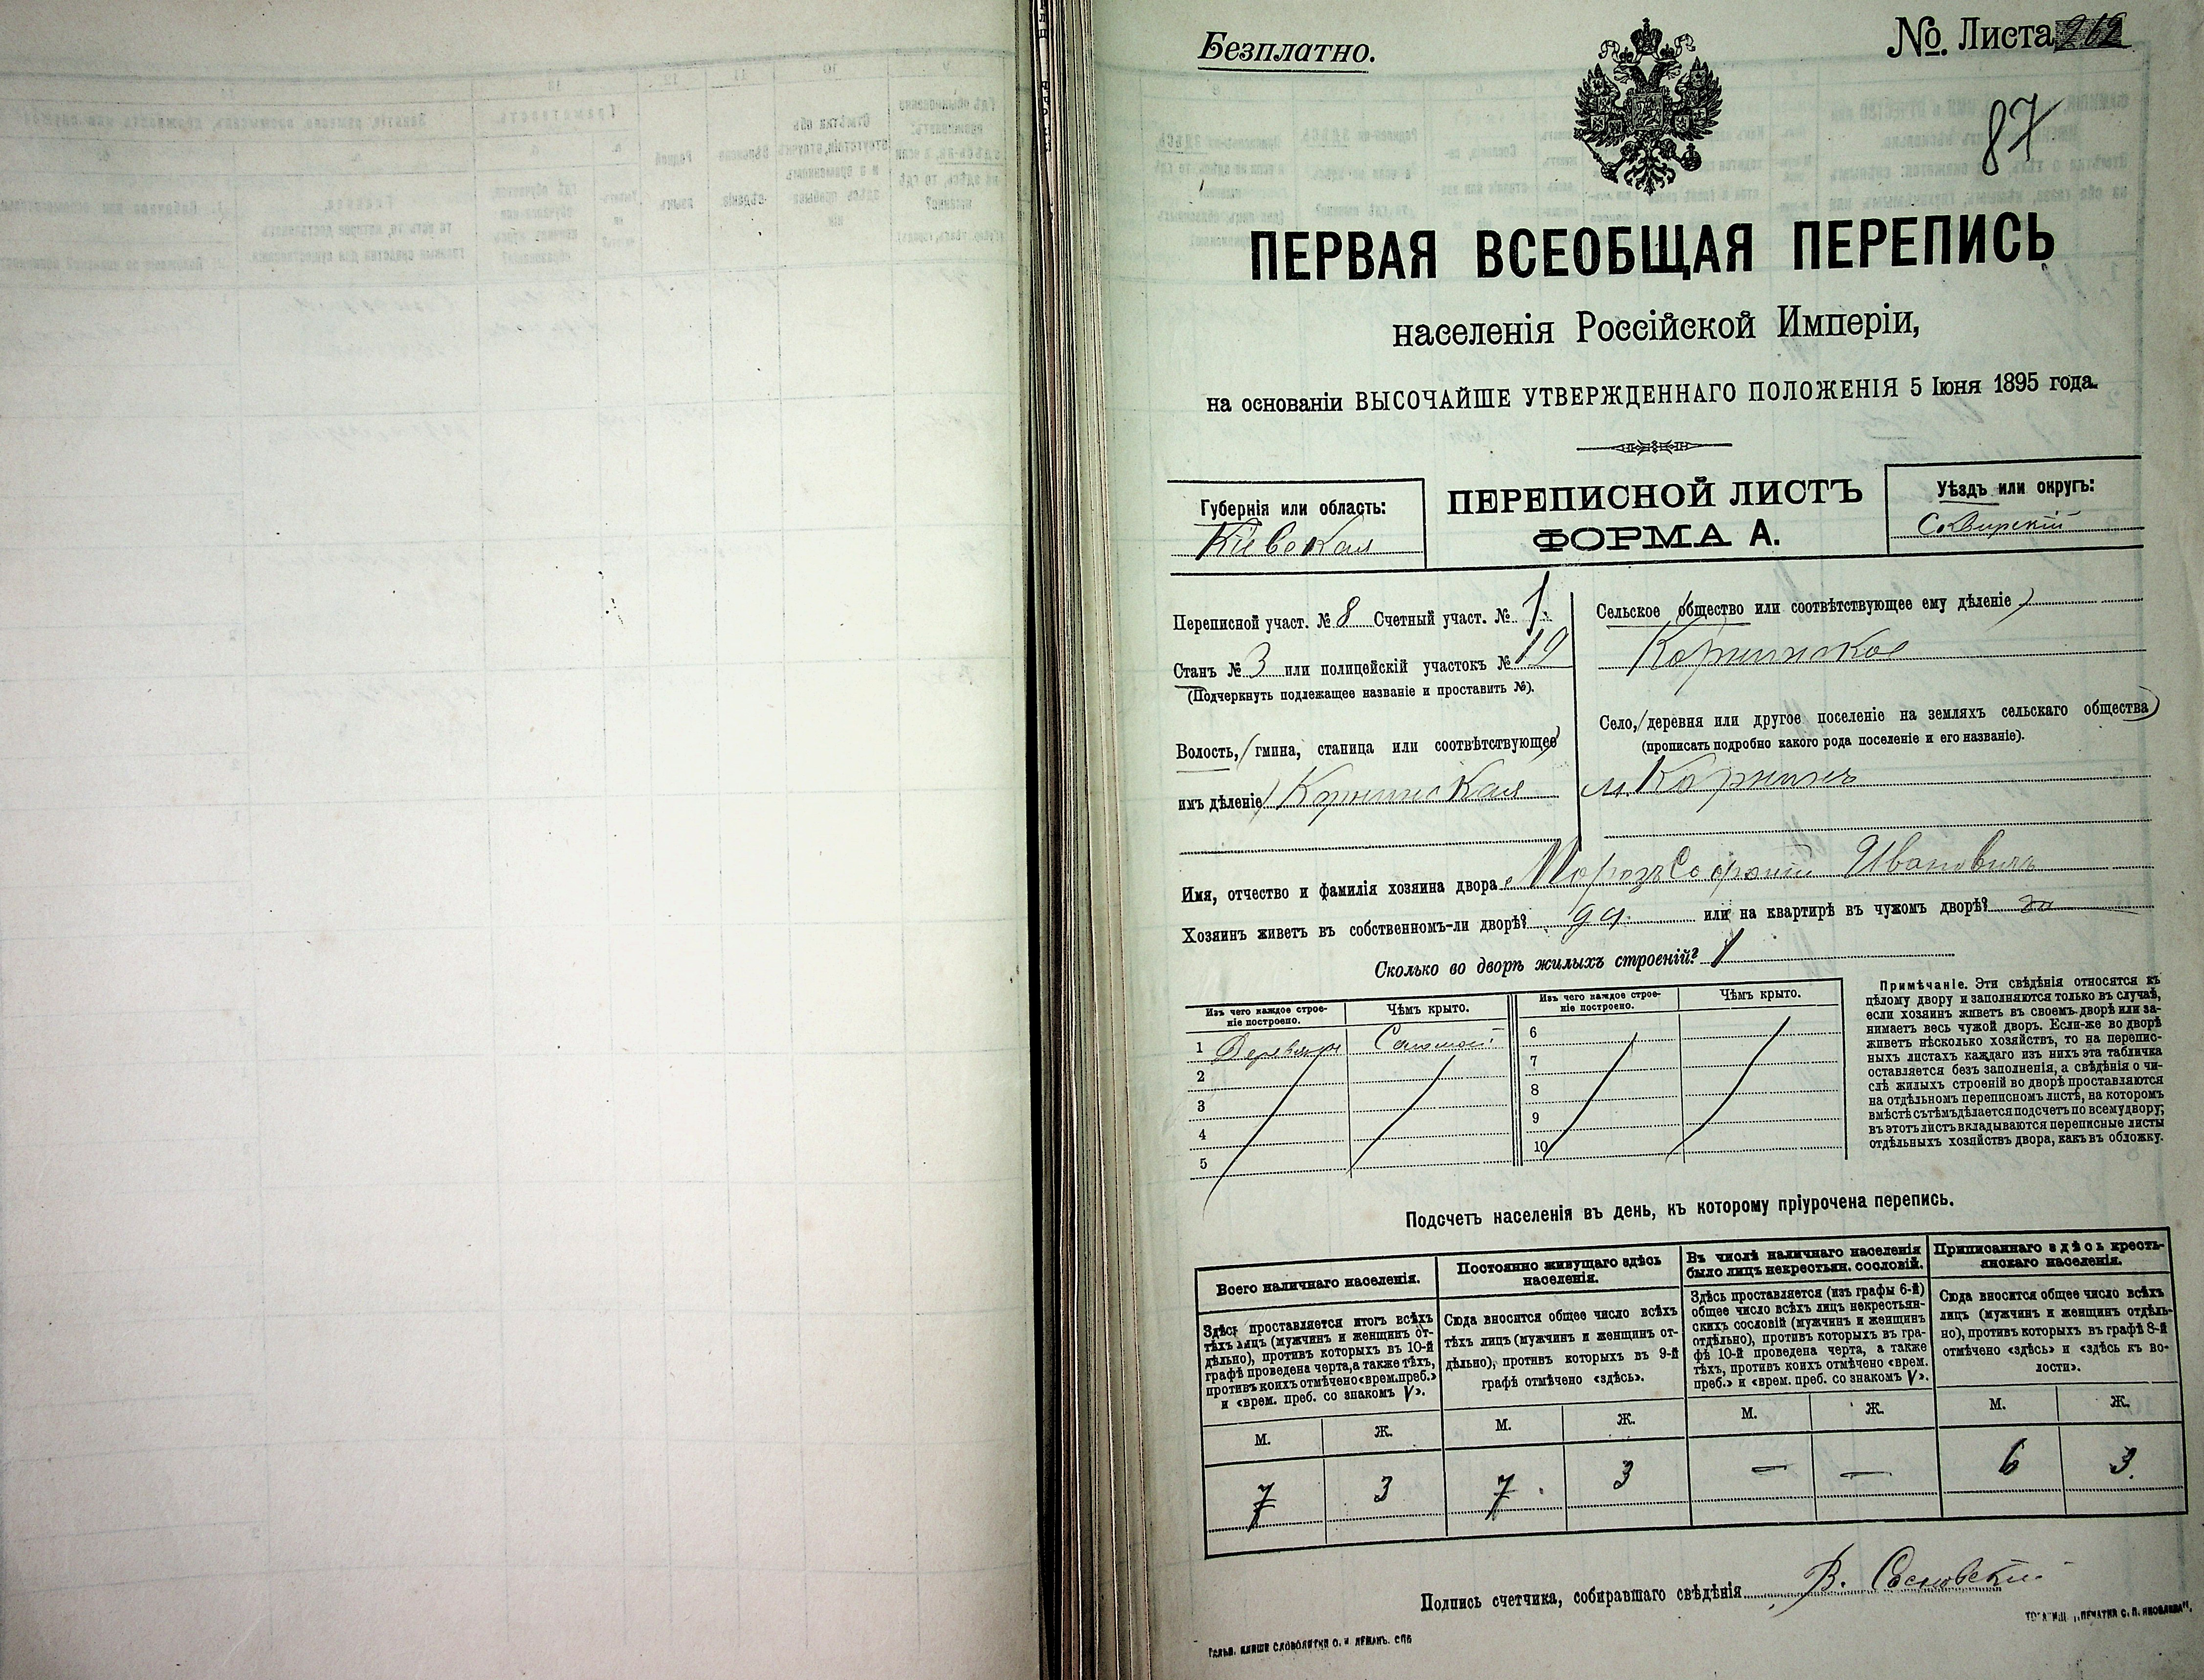 Безплатно.
No. Листа 212
87
ПЕРВАЯ ВСЕОБЩАЯ ПЕРЕПИСЬ
населенія Россійской Имперіи,
на основаніи ВЫСОЧАЙШЕ УТВЕРЖДЕННАГО ПОЛОЖЕНІЯ 5 Іюня 1895 года.
Губернія или область:
Кіевская
ПЕРЕПИСНОЙ ЛИСТЪ
ФОРМА А.
Уѣздъ или округъ:
Сквирскій
Переписной участ. № 8 Счетный участ. № 1
Станъ № 3 или полицейскій участокъ № 12
(Подчеркнуть подлежащее названіе и проставить №).
Волость, (гмина, станица или соотвѣтствующее
имъ дѣленіе) Корнинская
Сельское (общество или соотвѣтствующее ему дѣленіе)
Корнинское
Село, (деревня или другое поселеніе на земляхъ сельскаго общества)
(прописать подробно какого рода поселеніе и его названіе).
м. Корнинъ
Имя, отчество и фамилія хозяина двора Морозъ Софроній Ивановичъ
Хозяинъ живетъ въ собственномъ-ли дворѣ? да. или на квартирѣ въ чужомъ дворѣ?
Сколько во дворѣ жилыхъ строеній? 1
Изъ чего каждое строе-
ніе построено.
Чѣмъ крыто.
1 Деревяни Соломой
2
3
4
5
Изъ чего каждое строе-
ніе построено.
Чѣмъ крыто.
6
7
8
9
10
Примѣчаніе. Эти свѣдѣнія относятся къ
цѣлому двору и заполняются только въ случаѣ,
если хозяинъ живетъ въ своемъ дворѣ или за-
нимаетъ весь чужой дворъ. Если-же во дворѣ
живетъ нѣсколько хозяйствъ, то на перепис-
ныхъ листахъ каждаго изъ нихъ эта табличка
оставляется безъ заполненія, а свѣдѣнія о чи-
слѣ жилыхъ строеній во дворѣ проставляются
на отдѣльномъ переписномъ листѣ, на которомъ
вмѣстѣ съ тѣмъ дѣлается подсчетъ по всему двору;
въ этотъ листъ вкладываются переписные листы
отдѣльныхъ хозяйствъ двора, какъ въ обложку.
Подсчетъ населенія въ день, къ которому пріурочена перепись.
Всего наличнаго населенія.
Здѣсь проставляется итогъ всѣхъ
тѣхъ лицъ (мужчинъ и женщинъ от-
дѣльно), противъ которыхъ въ 10-й
графѣ проведена черта, а также тѣхъ,
противъ коихъ отмѣчено «врем. преб.»
и «врем. преб. со знакомъ V».
М. Ж.
7 3
Постоянно живущаго здѣсь
населенія.
Сюда вносится общее число всѣхъ
тѣхъ лицъ (мужчинъ и женщинъ от-
дѣльно), противъ которыхъ въ 9-й
графѣ отмѣчено «здѣсь».
М. Ж.
7 3
Въ числѣ наличнаго населенія
было лицъ некрестьян. сословій.
Здѣсь проставляется (изъ графы 6-й)
общее число всѣхъ лицъ некрестьян-
скихъ сословій (мужчинъ и женщинъ
отдѣльно), противъ которыхъ въ гра-
фѣ 10-й проведена черта, а также
тѣхъ, противъ коихъ отмѣчено «врем.
преб.» и «врем. преб. со знакомъ V».
М. Ж.
— —
Приписаннаго здѣсь кресть-
янскаго населенія.
Сюда вносится общее число всѣхъ
лицъ (мужчинъ и женщинъ отдѣль-
но), противъ которыхъ въ графѣ 8-й
отмѣчено «здѣсь» и «здѣсь къ во-
лости».
М. Ж.
6 3
Подпись счетчика, собиравшаго свѣдѣнія В. Сосновскій
Гальв. клише словолитни О. И. Леманъ. СПБ
„ПЕЧАТНЯ С. П. ЯКОВЛЕВА“,